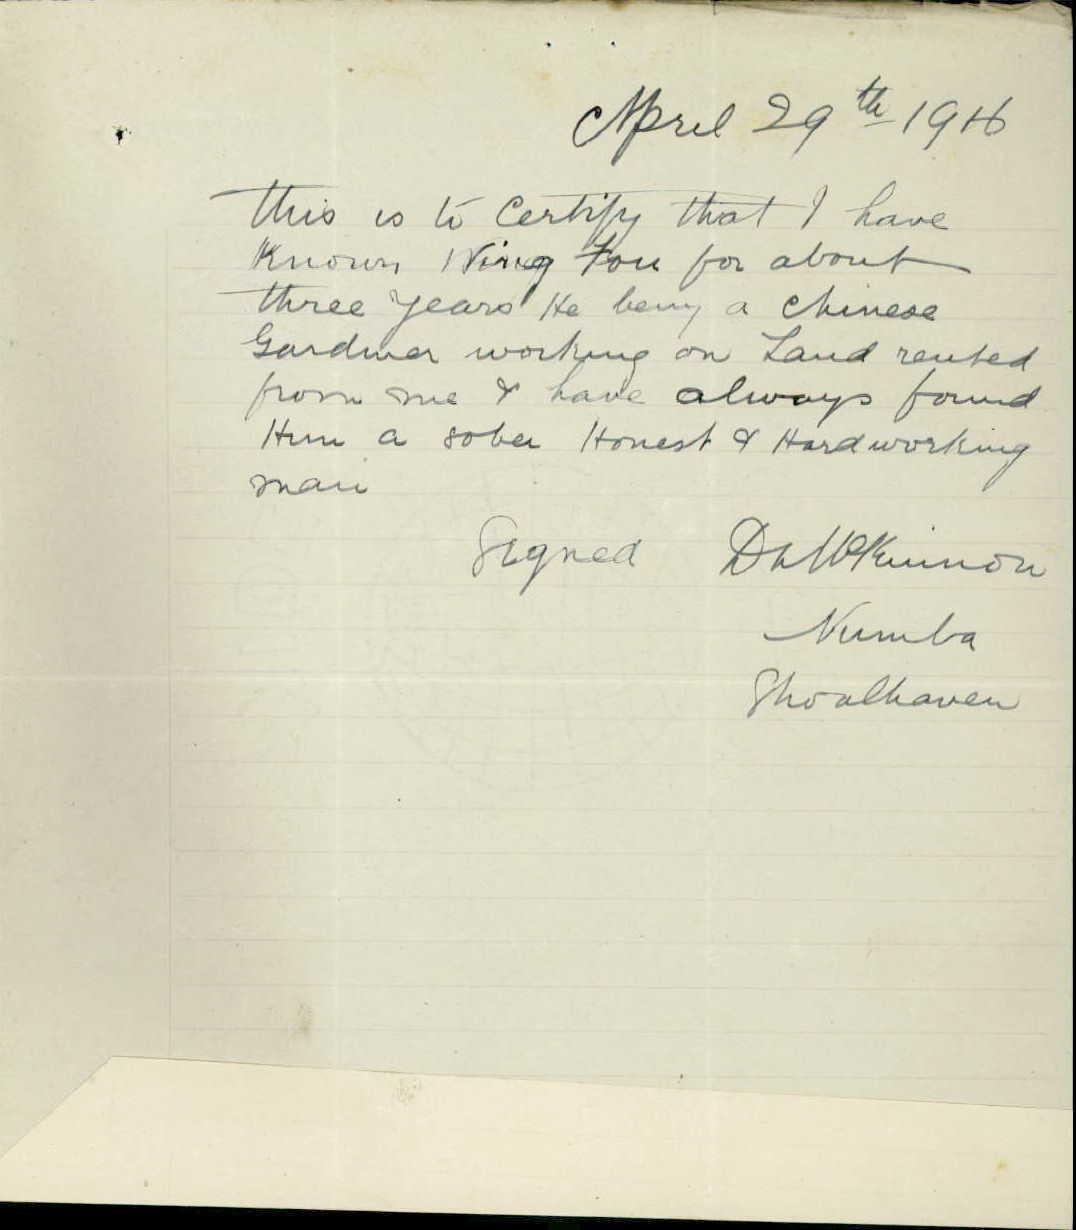 April 29th 1916
This is to Certify that I have
Known Wing Fou for about
three years He being a Chinese
Gardner working on Land rented
from me & have always found
Him a sober Honest & Hardworking
man
Signed D McKinnon
Numba
Shoalhaven